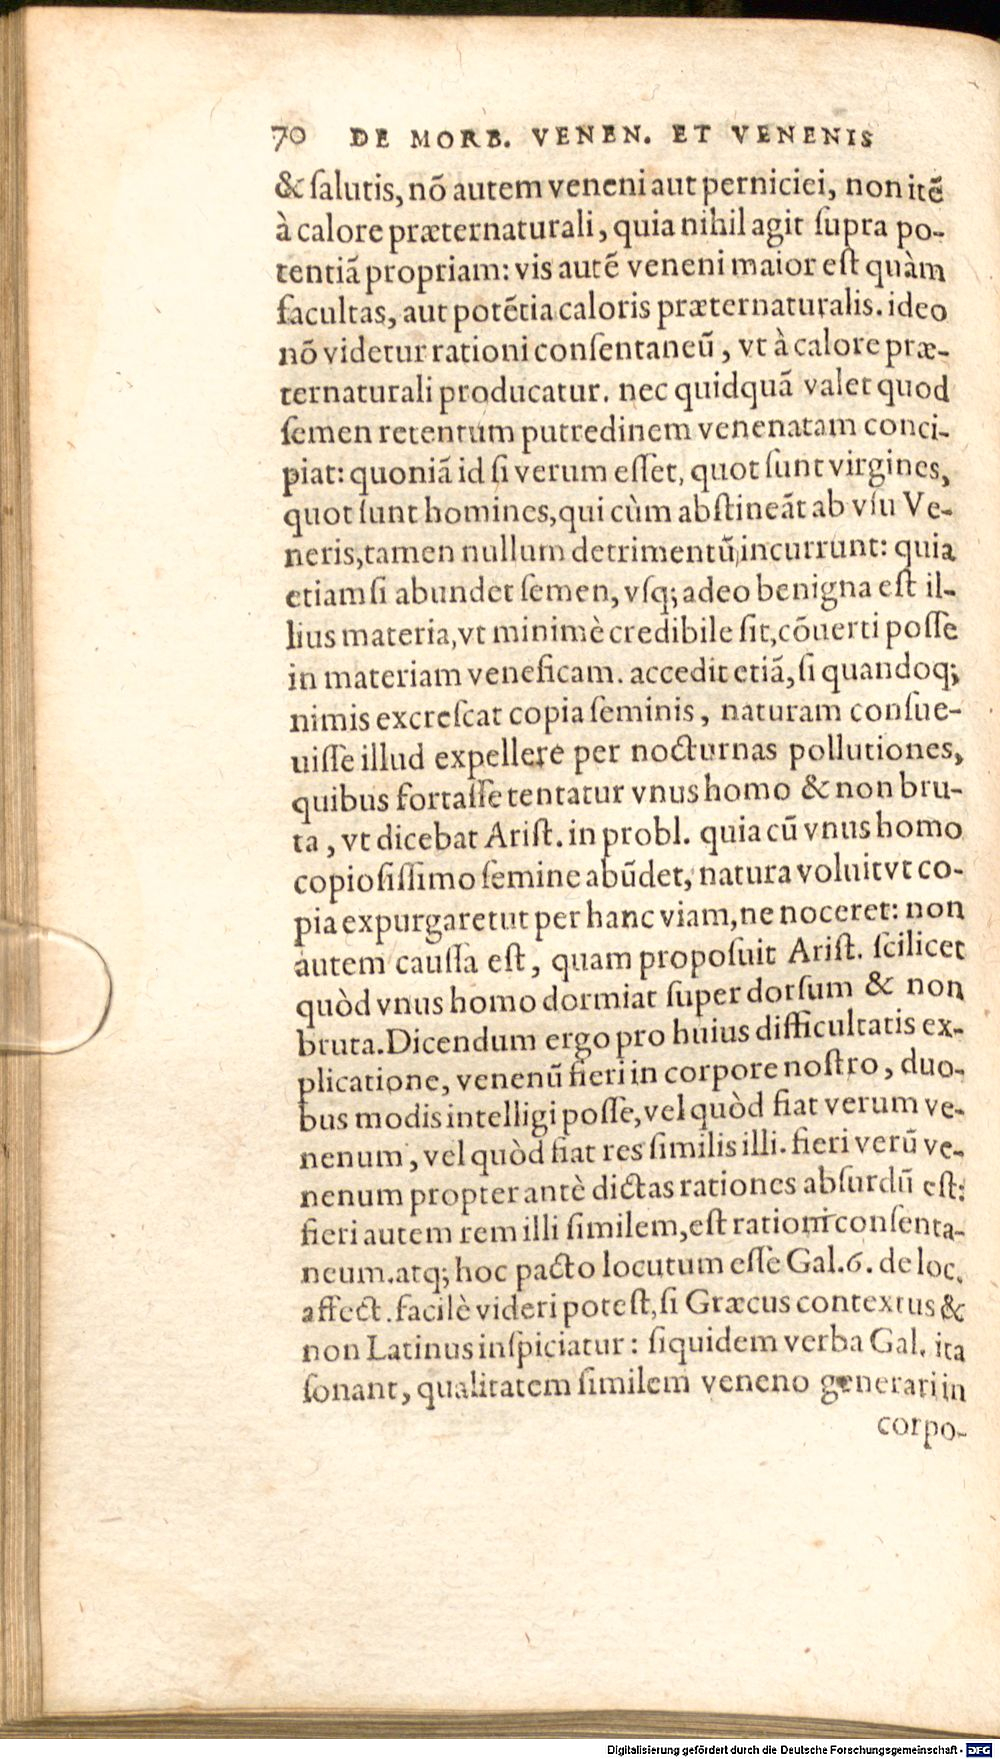 70 DE MORB. VENEN. ET VENENIS
& ſalutis, nõ autem veneni aut perniciei, non itẽ
à calore præternaturali, quia nihil agit ſupra po-
tentiã propriam: vis autẽ veneni maior eſt quàm
facultas, aut potẽtia caloris præternaturalis. ideo
nõ videtur rationi conſentaneũ, vt à calore præ-
ternaturali producatur. nec quidquã valet quod
ſemen retentum putredinem venenatam conci-
piat: quoniã id ſi verum eſſet, quot ſunt virgines,
quot ſunt homines, qui cùm abſtineãt ab vſu Ve-
neris, tamen nullum detrimentũ incurrunt: quia
etiamſi abundet ſemen, vſq; adeo benigna eſt il-
lius materia, vt minimè credibile ſit, cõuerti poſſe
in materiam veneficam. accedit etiã, ſi quandoq;
nimis excreſcat copia ſeminis, naturam conſue-
uiſſe illud expellere per nocturnas pollutiones,
quibus fortaſſe tentatur vnus homo & non bru-
ta, vt dicebat Ariſt. in probl. quia cũ vnus homo
copioſiſſimo ſemine abũdet, natura voluit vt co-
pia expurgaretut per hanc viam, ne noceret: non
autem cauſſa eſt, quam propoſuit Ariſt. ſcilicet
quòd vnus homo dormiat ſuper dorſum & non
bruta. Dicendum ergo pro huius difficultatis ex-
plicatione, venenũ fieri in corpore noſtro, duo-
bus modis intelligi poſſe, vel quòd fiat verum ve-
nenum, vel quòd fiat res ſimilis illi. fieri verũ ve-
nenum propter antè dictas rationes abſurdũ eſt:
fieri autem rem illi ſimilem, eſt rationi conſenta-
neum. atq; hoc pacto locutum eſſe Gal. 6. de loc.
affect. facilè videri poteſt, ſi Græcus contextus &
non Latinus inſpiciatur: ſiquidem verba Gal. ita
ſonant, qualitatem ſimilem veneno generari in
corpo-
Digitalisierung gefördert durch die Deutsche Forschungsgemeinschaft - DFG